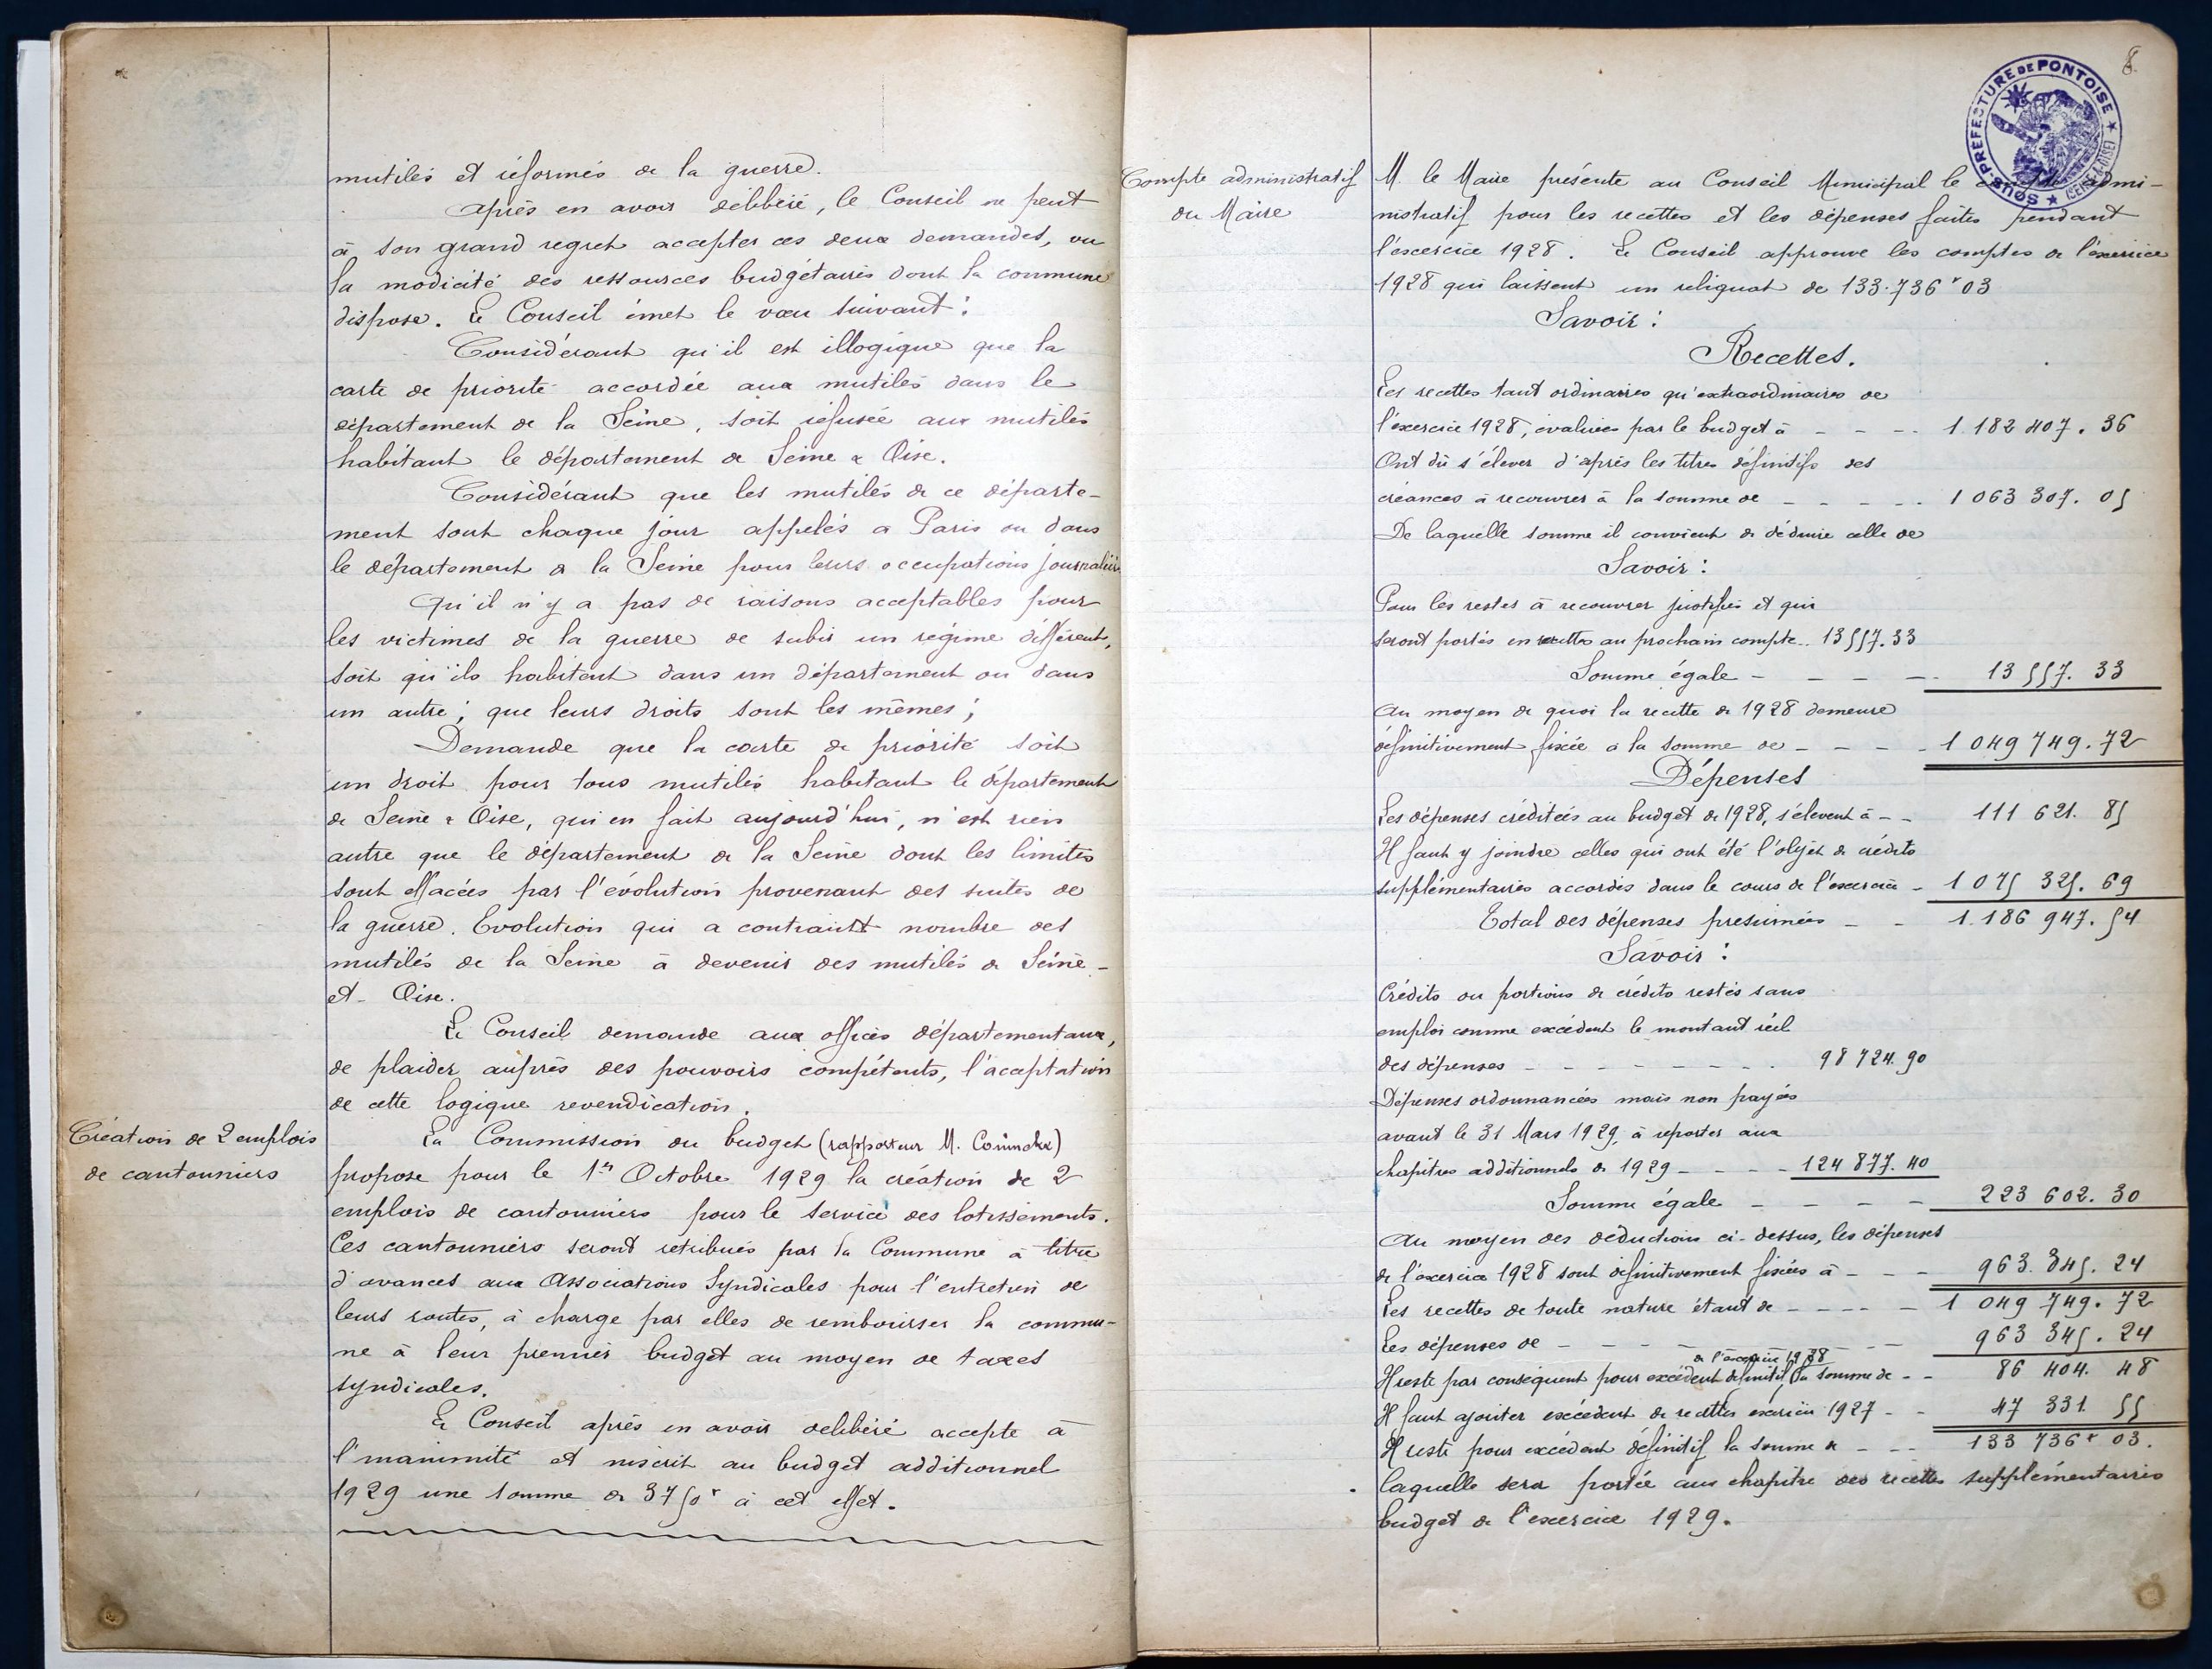 mutilés et réformés de la guerre.
Après en avoir délibéré, le Conseil ne peut
à son grand regret accepter ces deux demandes, vu
la modicité des ressources budgétaires dont la commune
dispose. Le Conseil émet le vœu suivant :
Considérant qu'il est illogique que la
carte de priorité accordée aux mutilés dans le
département de la Seine, soit refusée aux mutilés
habitant le département de Seine & Oise.
Considérant que les mutilés de ce départe-
ment sont chaque jour appelés à Paris ou dans
le département de la Seine pour leurs occupations
Qu'il n'y a pas de raisons acceptables pour
les victimes de la guerre de subir un régime différent,
soit qu'ils habitent dans un département ou dans
un autre ; que leurs droits sont les mêmes ;
Demande que la carte de priorité soit
un droit pour tous mutilés habitant le département
de Seine & Oise, qui en fait aujourd'hui, n'est rien
autre que le département de la Seine dont les limites
sont effacées par l'évolution provenant des suites de
la guerre. Evolution qui a contraint nombre des
mutilés de la Seine à devenir des mutilés de Seine-
et-Oise.
Le Conseil demande aux offices départementaux,
de plaider auprès des pouvoirs compétents, l'acceptation
de cette logique revendication.
Création de 2 emplois
de cantonniers
La Commission du budget (rapporteur M.
propose pour le 1er Octobre 1929 la création de 2
emplois de cantonniers pour le service des lotissements.
Ces cantonniers seront rétribués par la Commune à titre
d'avances aux Associations Syndicales pour l'entretien de
leurs routes, à charge par elles de rembourser la commu-
ne à leur premier budget au moyen de taxes
syndicales.
Le Conseil après en avoir délibéré accepte à
l'unanimité et inscrit au budget additionnel
1929 une somme de 3750f à cet effet.
8
SOUS-PREFECTURE DE PONTOISE
(SEINE & OISE)
Compte administratif
du Maire
M. le Maire présente au Conseil Municipal le compte admi-
nistratif pour les recettes et les dépenses faites pendant
l'exercice 1928. Le Conseil approuve les comptes de l'exercice
1928 qui laissent un reliquat de 133.736f 03
Savoir :
Recettes.
Les recettes tant ordinaires qu'extraordinaires de
l'exercice 1928, évaluées par le budget à - - - - 1.182 407. 36
Ont dû s'élever d'après les titres définitifs des
créances à recouvrer à la somme de - - - - - 1 063 307. 05
De laquelle somme il convient de déduire celle de
Savoir :
Pour les restes à recouvrer justifiés et qui
seront portés en recettes au prochain compte.. 13 557. 33
Somme égale - - - - - 13 557. 33
Au moyen de quoi la recette de 1928 demeure
définitivement fixée à la somme de - - - - 1 049 749. 72
Dépenses
Les dépenses créditées au budget de 1928, s'élevent à - - 111 621. 85
Il faut y joindre celles qui ont été l'objet de crédits
supplémentaires accordés dans le cours de l'exercice - 1 075 325. 69
Total des dépenses presumées - - 1.186 947. 54
Savoir :
Crédits ou portions de crédits restés sans
emploi comme excédent le montant réel
des dépenses - - - - - - - - 98 724. 90
Dépenses ordonnancées mais non payées
avant le 31 Mars 1929, à reporter aux
chapitres additionnels de 1929 - - - - 124 877. 40
Somme égale - - - - 223 602. 30
Au moyen des déductions ci-dessus, les dépenses
de l'exercice 1928 sont définitivement fixées à - - - 963. 345. 24
Les recettes de toute nature étant de - - - - - 1 049 749. 72
Les dépenses de - - - - - - - - 963 345. 24
de l'exercice 1928
Il reste par conséquent pour excédent définitif, la somme de - - 86 404. 48
Il faut ajouter excédent de recettes exercice 1927 - - 47 331. 55
Il reste pour excédent définitif la somme de - - - 133 736f 03.
laquelle sera portée aux chapitre des recettes supplémentaires
budget de l'exercice 1929.